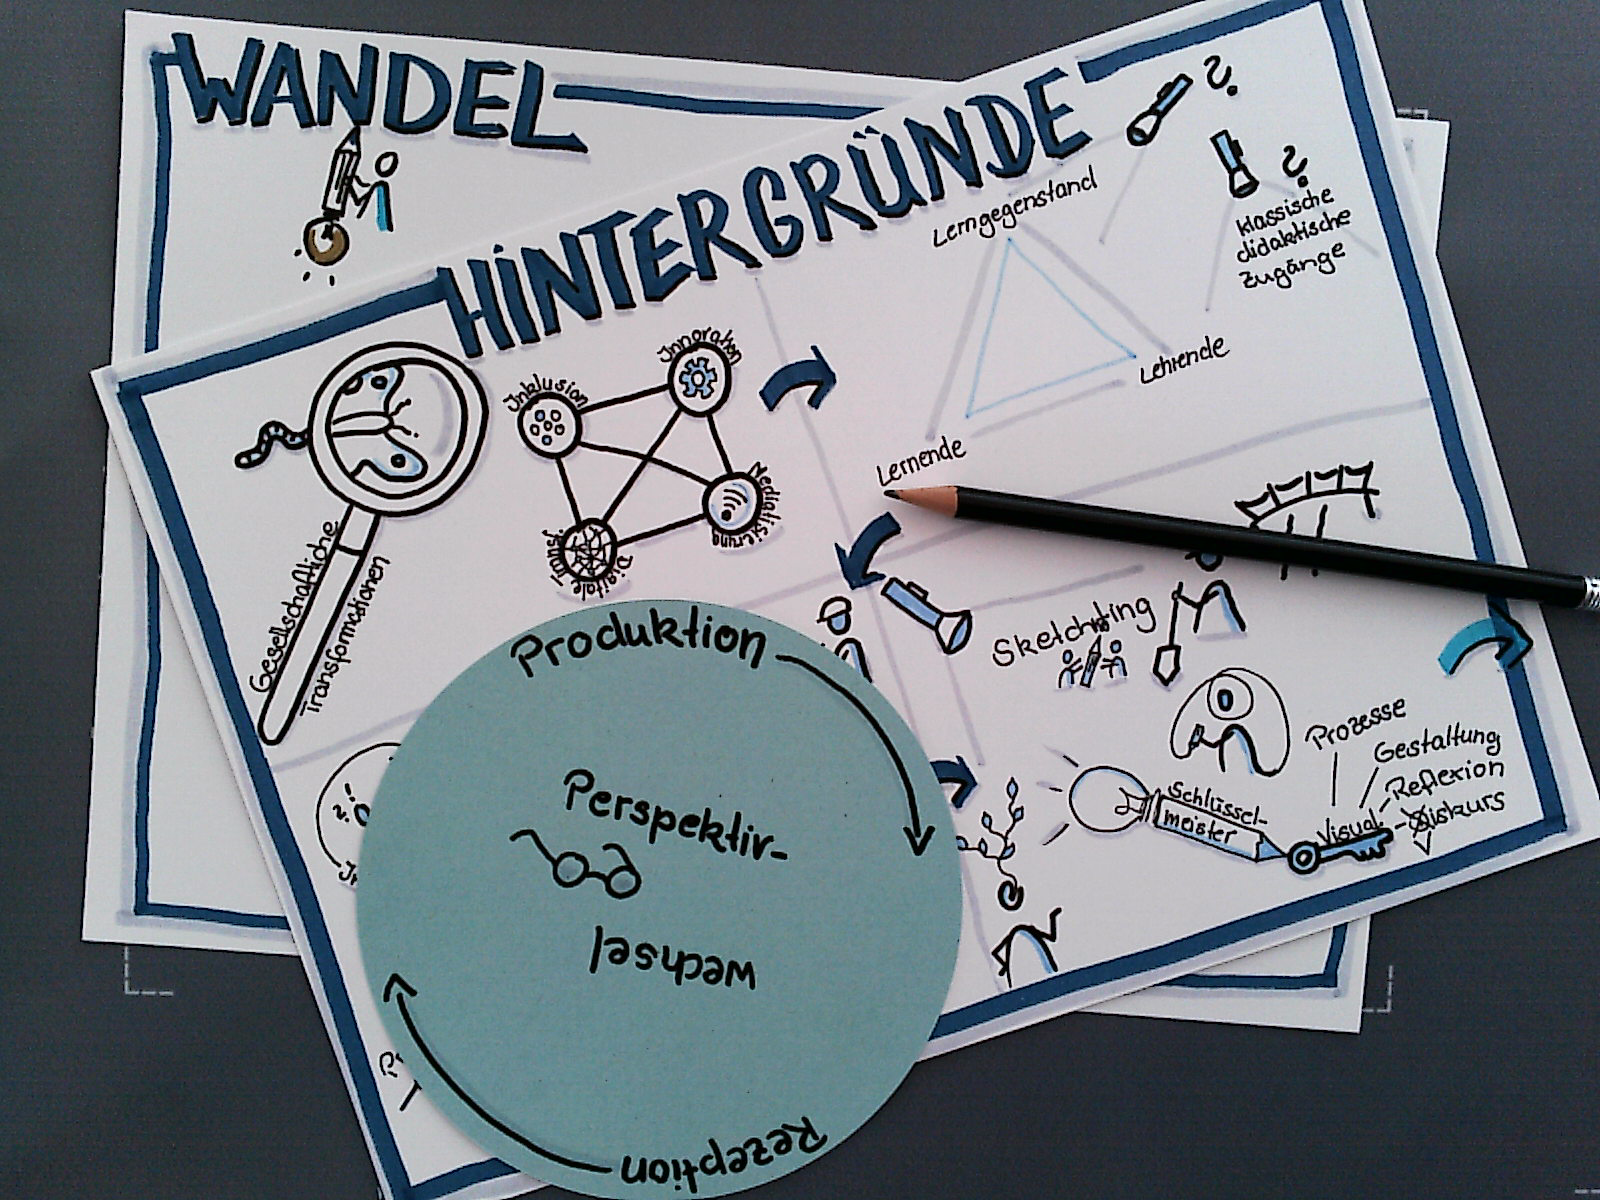 WANDEL
HINTERGRÜNDE
Lerngegenstand
klassische
didaktische
Zugänge
Lehrende
Lernende
Inklusion
Innovation
Mediatisierung
Digitale
Gesellschaftliche
Transformationen
Sketchting
Prozesse
Gestaltung
Reflexion
Diskurs
Visual
Schlüssel-
meister
Produktion
Perspektiv-
wechsel
Rezeption